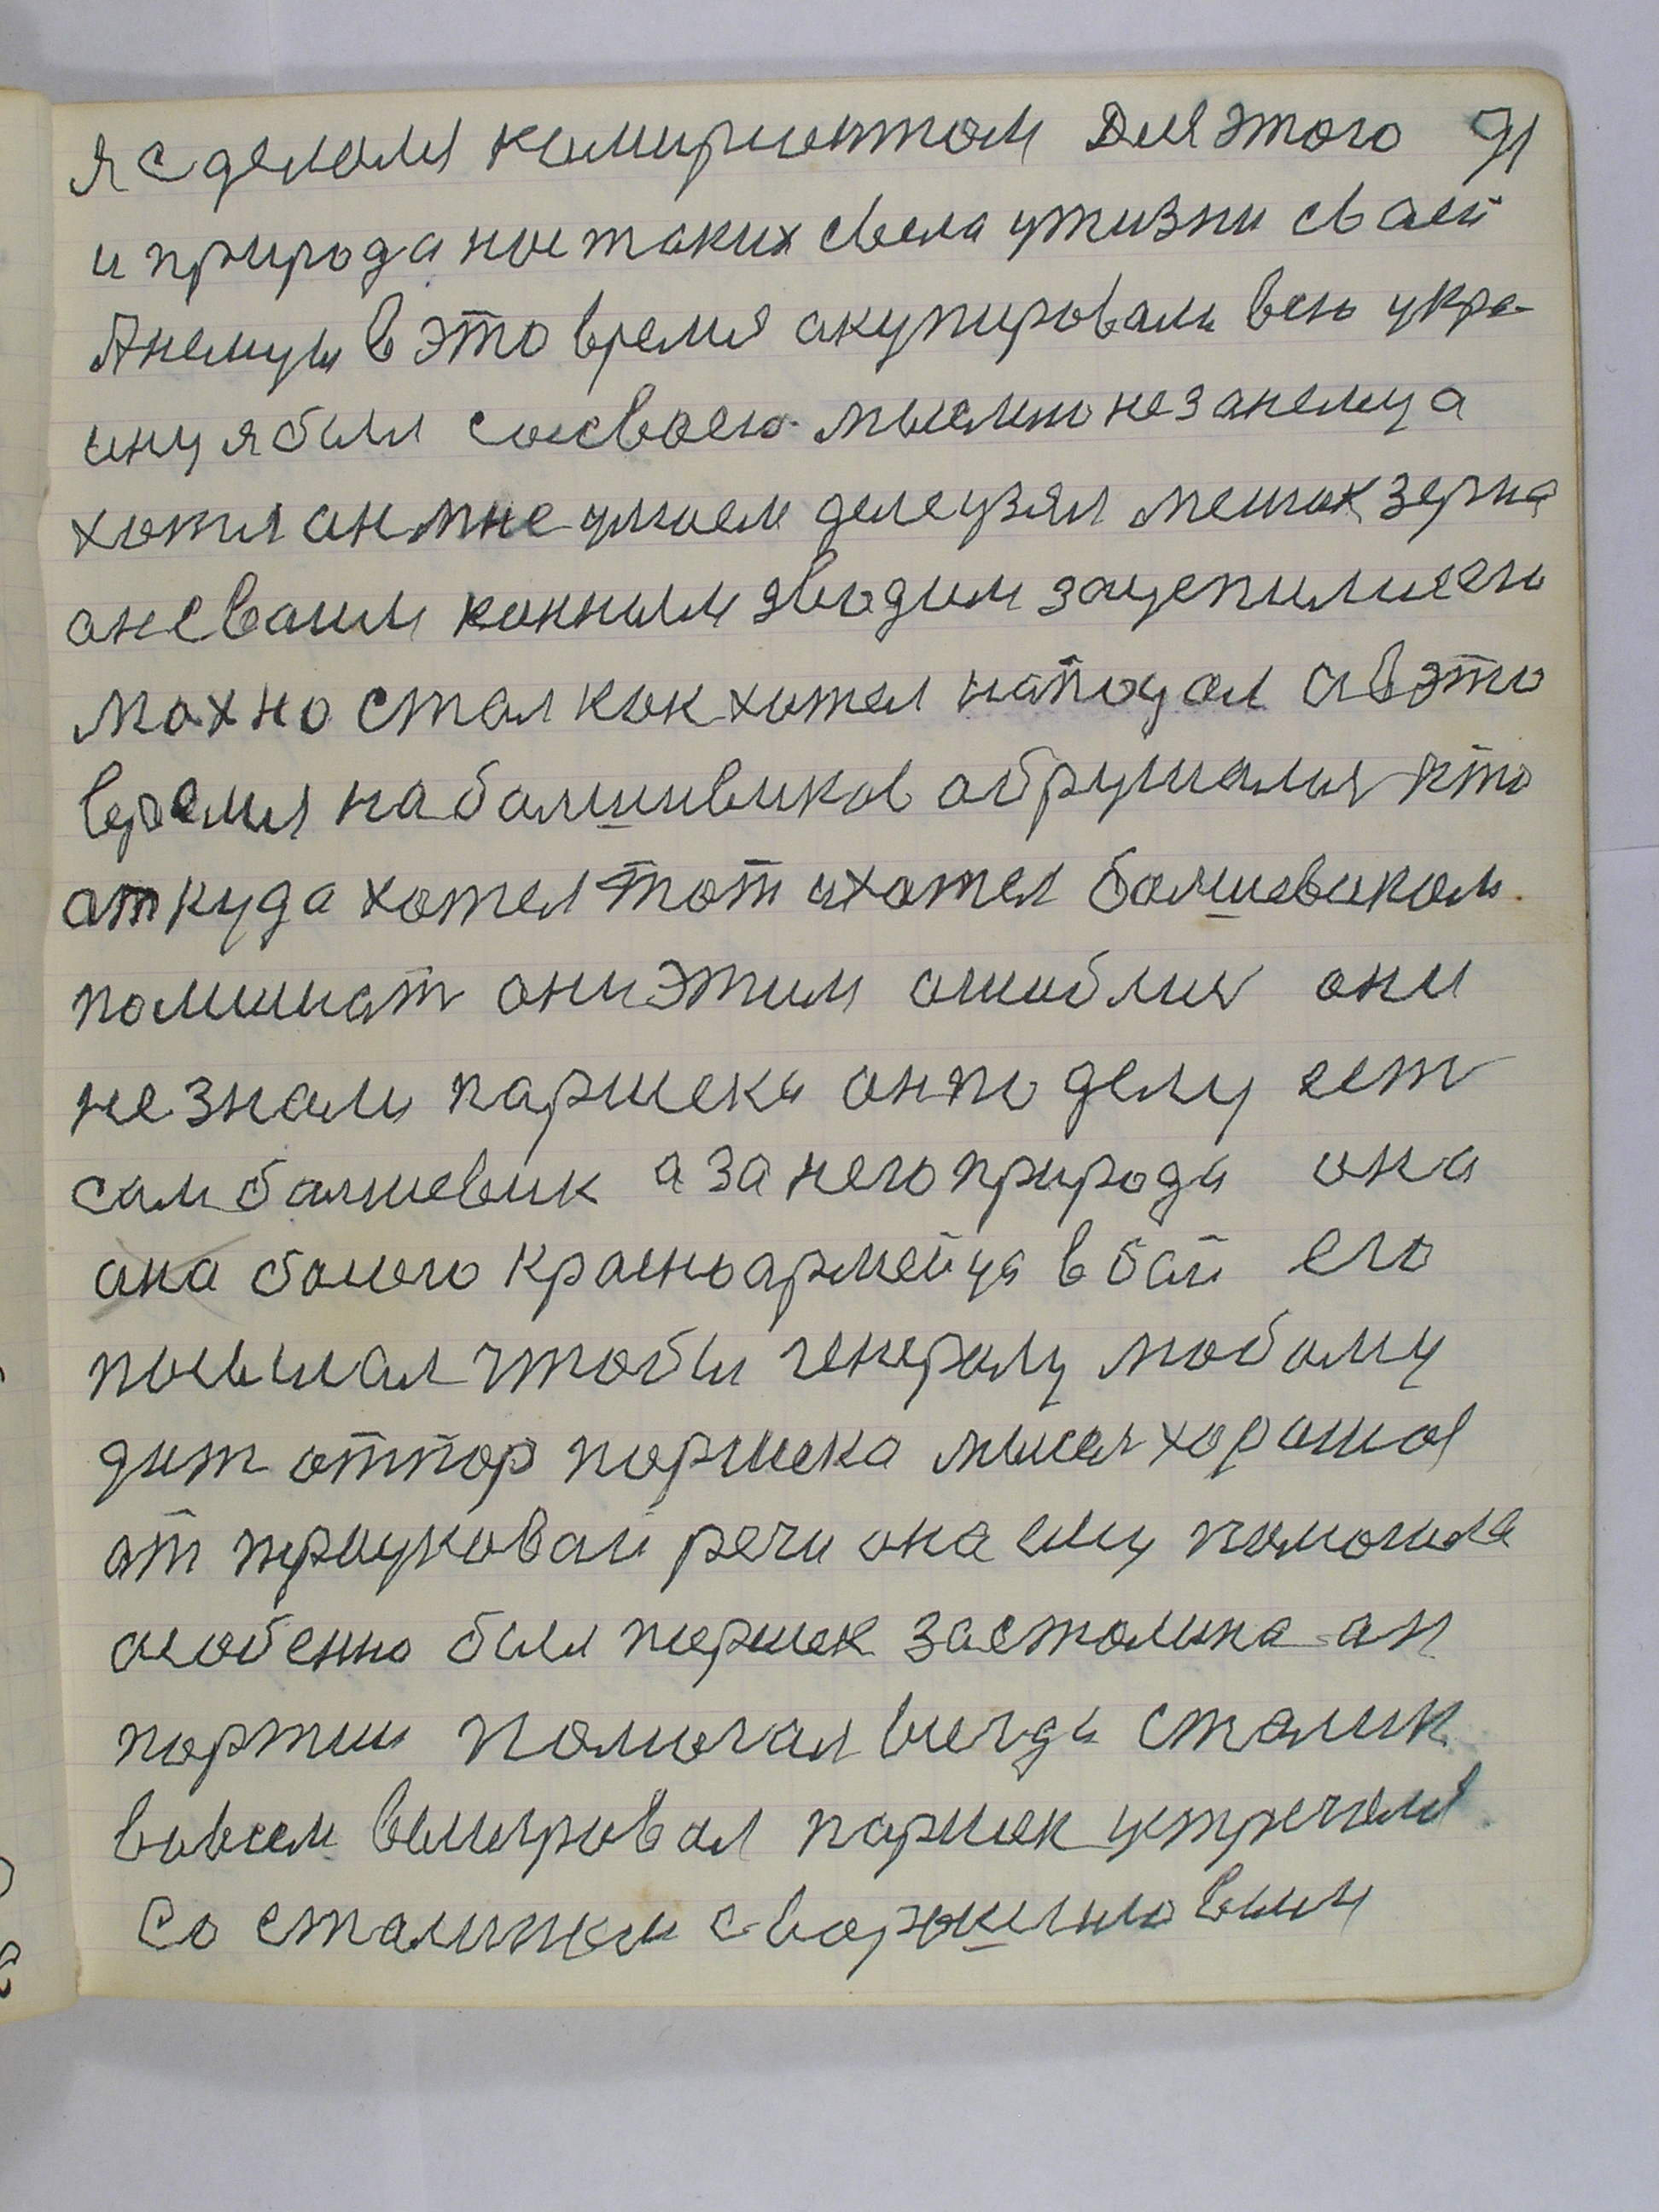 я сделался камирсантом Для этого 91
и природа нас таких свела у жизни сваей
А немцы в это время акупировали всю укра-
ину я был со своею мыслею не за немца
хотя он мне умоем деле узял мешок зерна
он сваим конным зводим зацепился он
махно стал как хотел нападал а в это
время на балшивиков обрушался кто
аткуда хотел тот и хотел балшевикам
памишат они этим ошиблись они
не знали паршека он по делу ест
сам балшевик а за него природа она
ана болого красноармейца в бай его
посылал чтобы генералу любому
дат отпор паршека мысля хорошоя
от трауковай речи она ему помогла
особенно был паршек за сталина он
партии помогал всегда сталин
во всем выигровал паршек устречался
со сталиным с ворошиловым